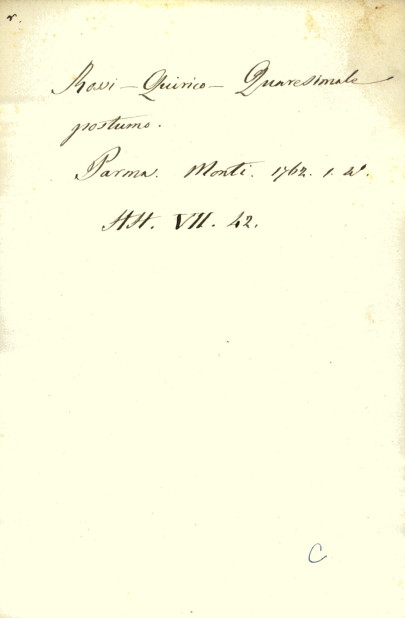 r.
Rossi - Quirico - Quaresimale
postumo.
Parma. Monti. 1762. 1. 4°.
HH. VII. 42.
C